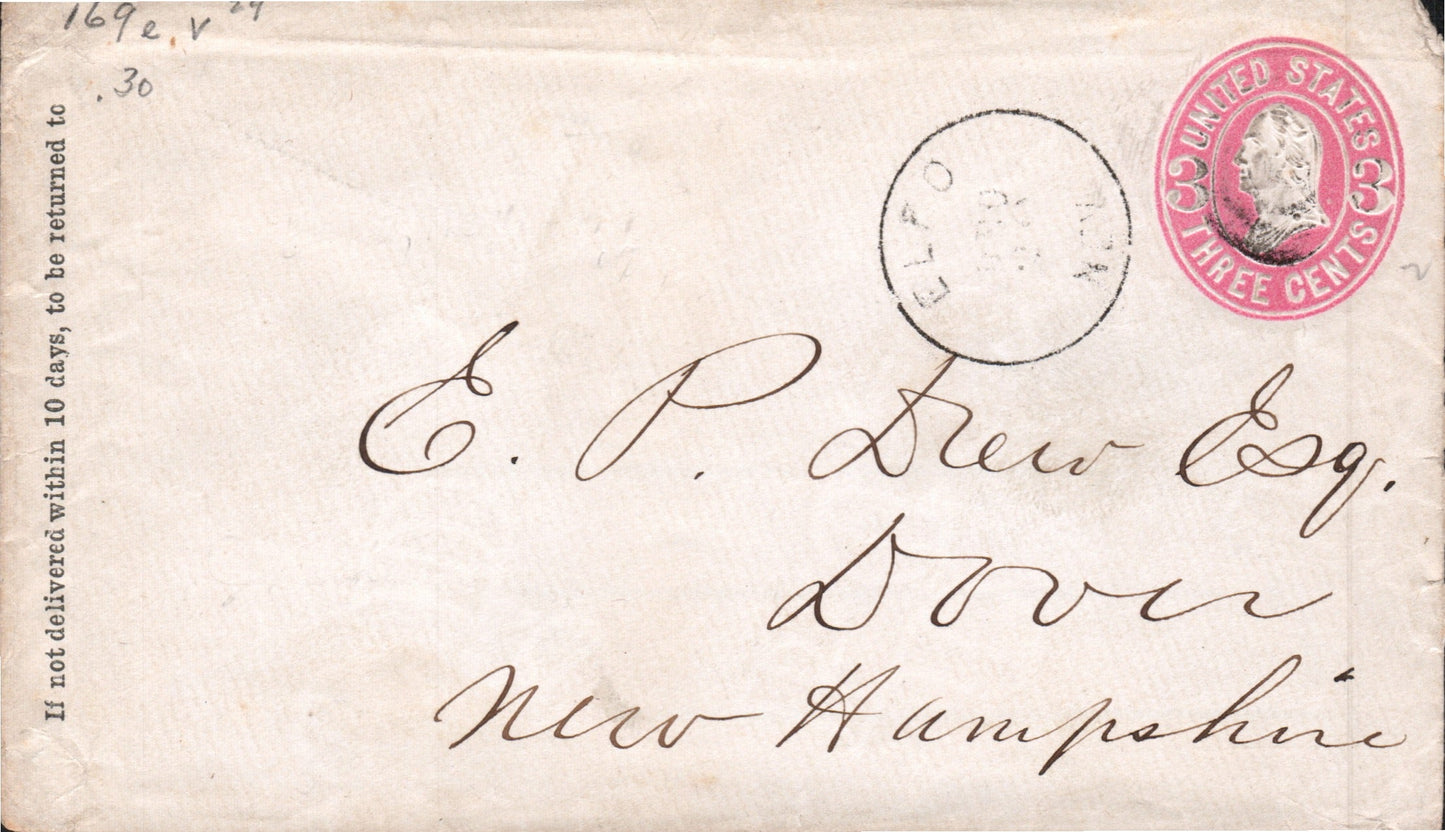 169 e v 29
.30
If not delivered within 10 days, to be returned to
UNITED STATES
3 3
THREE CENTS
ELKO
NEV
E. P. Drew Esq.
Dover
New Hampshire